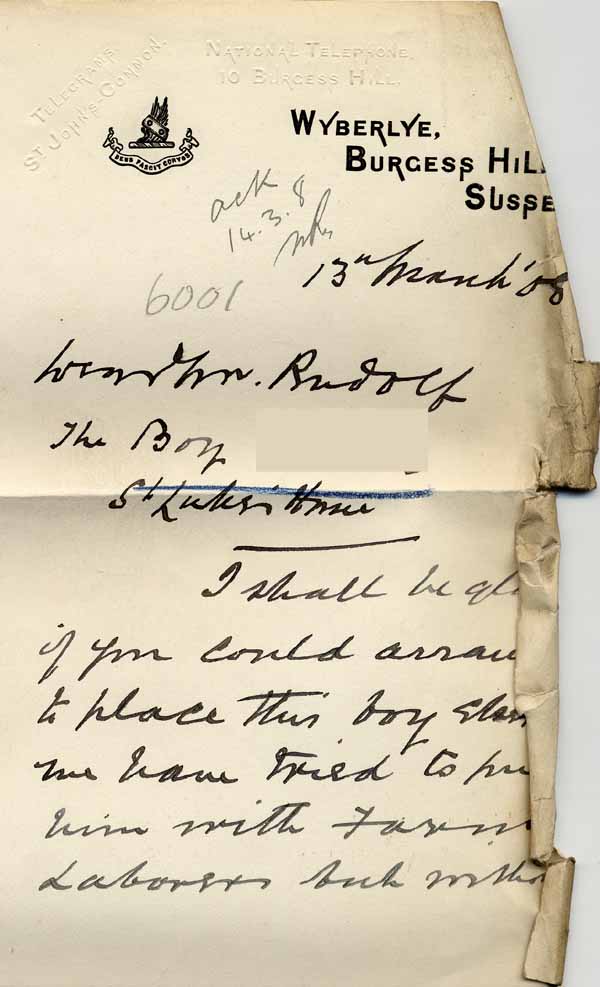 TELEGRAMS.
ST JOHN'S-COMMON.
NATIONAL TELEPHONE,
10 BURGESS HILL.
WYBERLYE,
BURGESS HIL
SUSSE
DEUS PASCIT CORVOS
ack
14.3.8
6001
13th March '08
Dear Mr. Rudolf
The Boy
St Luke's Home
I shall be gl
if you could arran
to place this boy else
we have tried to pu
him with Farm
Laborers but witho